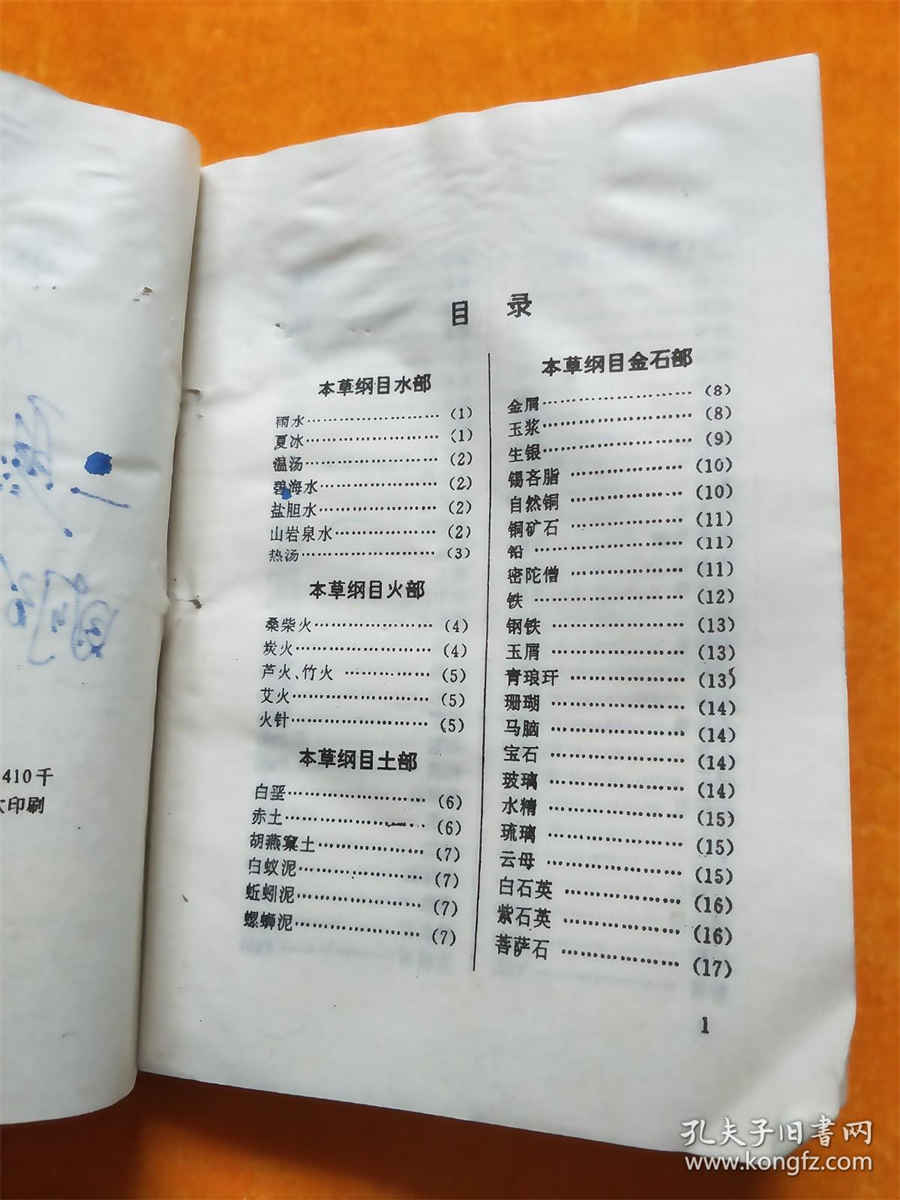 410千
大印刷
目 录
本草纲目水部
雨水……………………(1)
夏冰……………………(1)
温汤……………………(2)
碧海水…………………(2)
盐胆水…………………(2)
山岩泉水………………(2)
热汤……………………(3)
本草纲目火部
桑柴火…………………(4)
炭火……………………(4)
芦火、竹火……………(5)
艾火……………………(5)
火针……………………(5)
本草纲目土部
白垩……………………(6)
赤土……………………(6)
胡燕窠土………………(7)
白蚁泥…………………(7)
蚯蚓泥…………………(7)
螺蛳泥…………………(7)
本草纲目金石部
金屑……………………(8)
玉浆……………………(8)
生银……………………(9)
锡吝脂…………………(10)
自然铜…………………(10)
铜矿石…………………(11)
铅………………………(11)
密陀僧…………………(11)
铁………………………(12)
钢铁……………………(13)
玉屑……………………(13)
青琅玕…………………(13)
珊瑚……………………(14)
马脑……………………(14)
宝石……………………(14)
玻璃……………………(14)
水精……………………(15)
琉璃……………………(15)
云母……………………(15)
白石英…………………(16)
紫石英…………………(16)
菩萨石…………………(17)
1
孔夫子旧書网
www.kongfz.com